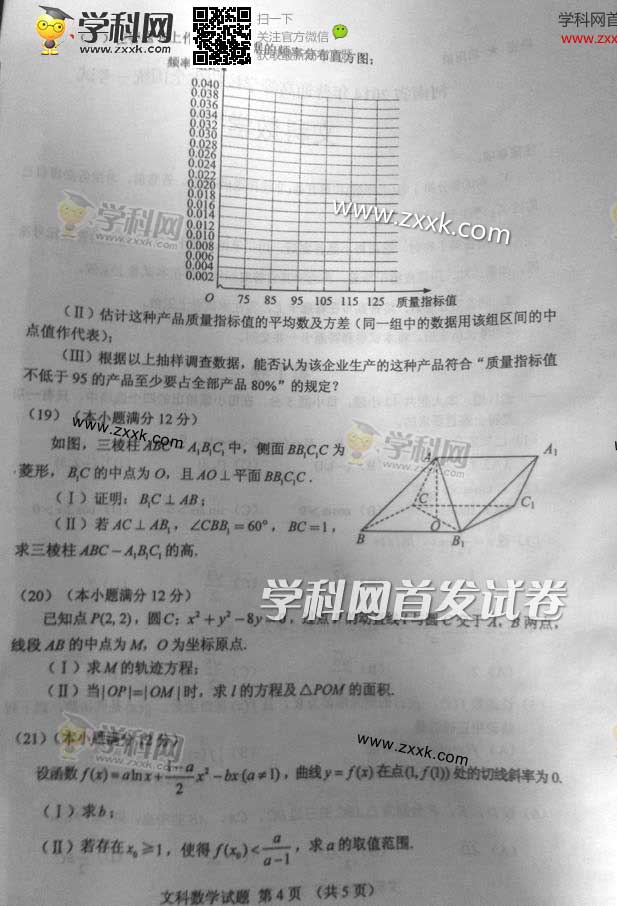 学科网
www.zxxk.com
扫一下
关注官方微信
学科网首
www.zx
频率分布直方图：
频率
0.040
0.038
0.036
0.034
0.032
0.030
0.028
0.026
0.024
0.022
0.020
0.018
0.016
0.014
0.012
0.010
0.008
0.006
0.004
0.002
O 75 85 95 105 115 125 质量指标值
学科网
www.zxxk.com
www.zxxk.com
（Ⅱ）估计这种产品质量指标值的平均数及方差（同一组中的数据用该组区间的中
点值作代表）；
（Ⅲ）根据以上抽样调查数据，能否认为该企业生产的这种产品符合“质量指标值
不低于 95 的产品至少要占全部产品 80%”的规定？
（19）（本小题满分 12 分）
www.zxxk.com
如图，三棱柱 ABC－A₁B₁C₁ 中，侧面 BB₁C₁C 为
菱形，B₁C 的中点为 O，且 AO⊥平面 BB₁C₁C．
（Ⅰ）证明：B₁C⊥AB；
（Ⅱ）若 AC⊥AB₁，∠CBB₁＝60°，BC＝1，
求三棱柱 ABC－A₁B₁C₁ 的高.
A A₁
C C₁
O
B B₁
学科网
www.zxxk.com
（20）（本小题满分 12 分）
学科网首发试卷
已知点 P(2, 2)，圆 C：x²＋y²－8y 交于 A，B 两点，
线段 AB 的中点为 M，O 为坐标原点.
（Ⅰ）求 M 的轨迹方程；
（Ⅱ）当|OP|=|OM|时，求 l 的方程及△POM 的面积.
学科网
www.zxxk.com
www.zxxk.com
（21）（本小题满分 12 分）
设函数 f(x)＝a ln x＋(1－a)/2 x²－bx (a≠1)，曲线 y＝f(x) 在点(1, f(1)) 处的切线斜率为 0.
（Ⅰ）求 b；
（Ⅱ）若存在 x₀≥1，使得 f(x₀)＜a/(a－1)，求 a 的取值范围.
文科数学试题 第 4 页 （共 5 页）